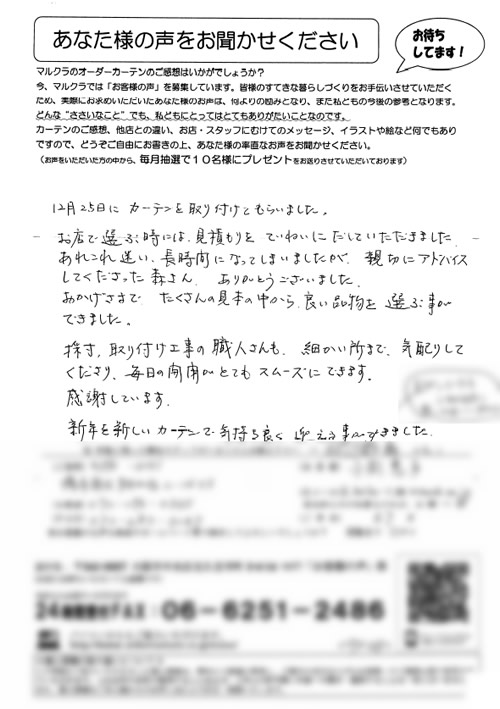 あなた様の声をお聞かせください
お待ち
してます！
マルクラのオーダーカーテンのご感想はいかがでしょうか？
今、マルクラでは「お客様の声」を募集しています。皆様のすてきな暮らしづくりをお手伝いさせていただく
ため、実際にお求めいただいたあなた様のお声は、何よりの励みとなり、また私どもの今後の参考となります。
どんな“ささいなこと”でも、私どもにとってはとてもありがたいことなのです。
カーテンのご感想、他店との違い、お店・スタッフにむけてのメッセージ、イラストや絵など何でもあり
ですので、どうぞご自由にお書きの上、あなた様の率直なお声をお聞かせください。
（お声をいただいた方の中から、毎月抽選で１０名様にプレゼントをお送りさせていただいております）
12月25日に カーテンを取り付けてもらいました。
お店で選ぶ時には、見積もりを ていねいに だしていただきました
あれこれ迷い、長時間になってしまいましたが、親切にアドバイス
してくださった森さん、ありがとうございました。
おかげさまで たくさんの見本の中から、良い品物を 選ぶ事が
できました。
採寸、取り付け工事の職人さんも、細かい所まで、気配りして
くださり、毎日の開閉がとても スムーズに できます。
感謝しています。
新年を新しいカーテンで気持ち良く 迎える事ができました。
24時間受付FAX：06-6251-2486